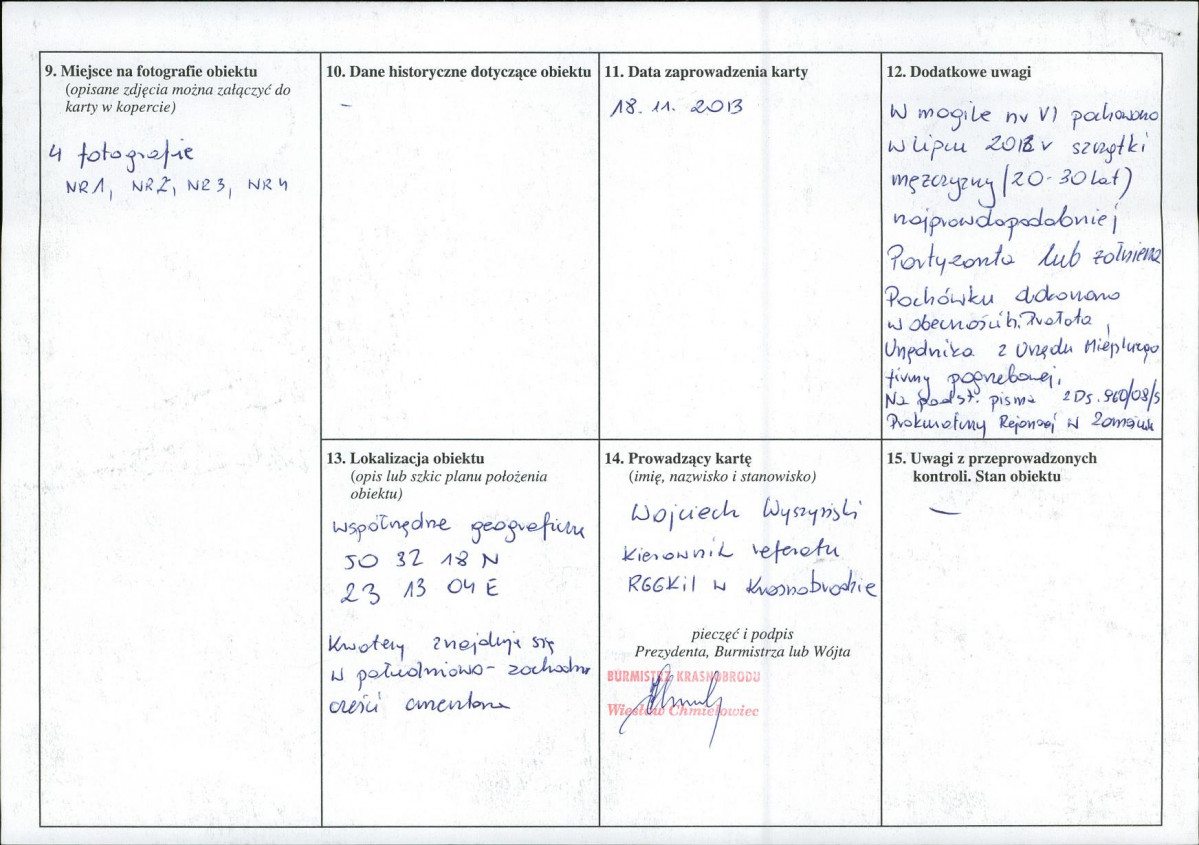 9. Miejsce na fotografie obiektu
(opisane zdjęcia można załączyć do
karty w kopercie)
4 fotografie
NR1, NR2, NR3, NR4
10. Dane historyczne dotyczące obiektu
-
11. Data zaprowadzenia karty
18. 11. 2013
12. Dodatkowe uwagi
W mogile nr VI pochowano
w lipcu 2012 r szczątki
mężczyzny (20-30 lat)
najprawdopodobniej
Partyzanta lub żołnierza
Pochówku dokonano
w obecności
Urzędnika z Urzędu Miejskiego
firmy pogrzebowej.
Na podst. pisma 2Ds. 960/08/S
Prokuratury Rejonowej w Zamościu
13. Lokalizacja obiektu
(opis lub szkic planu położenia
obiektu)
współrzędne geograficzne
50 32 18 N
23 13 04 E
Kwatery znajdują się
w południowo-zachodniej
części cmentarza
14. Prowadzący kartę
(imię, nazwisko i stanowisko)
Wojciech Wyszyński
Kierownik referatu
RGGKiI w Krasnobrodzie
pieczęć i podpis
Prezydenta, Burmistrza lub Wójta
BURMISTRZ KRASNOBRODU
Wiesław Chmielowiec
15. Uwagi z przeprowadzonych
kontroli. Stan obiektu
—